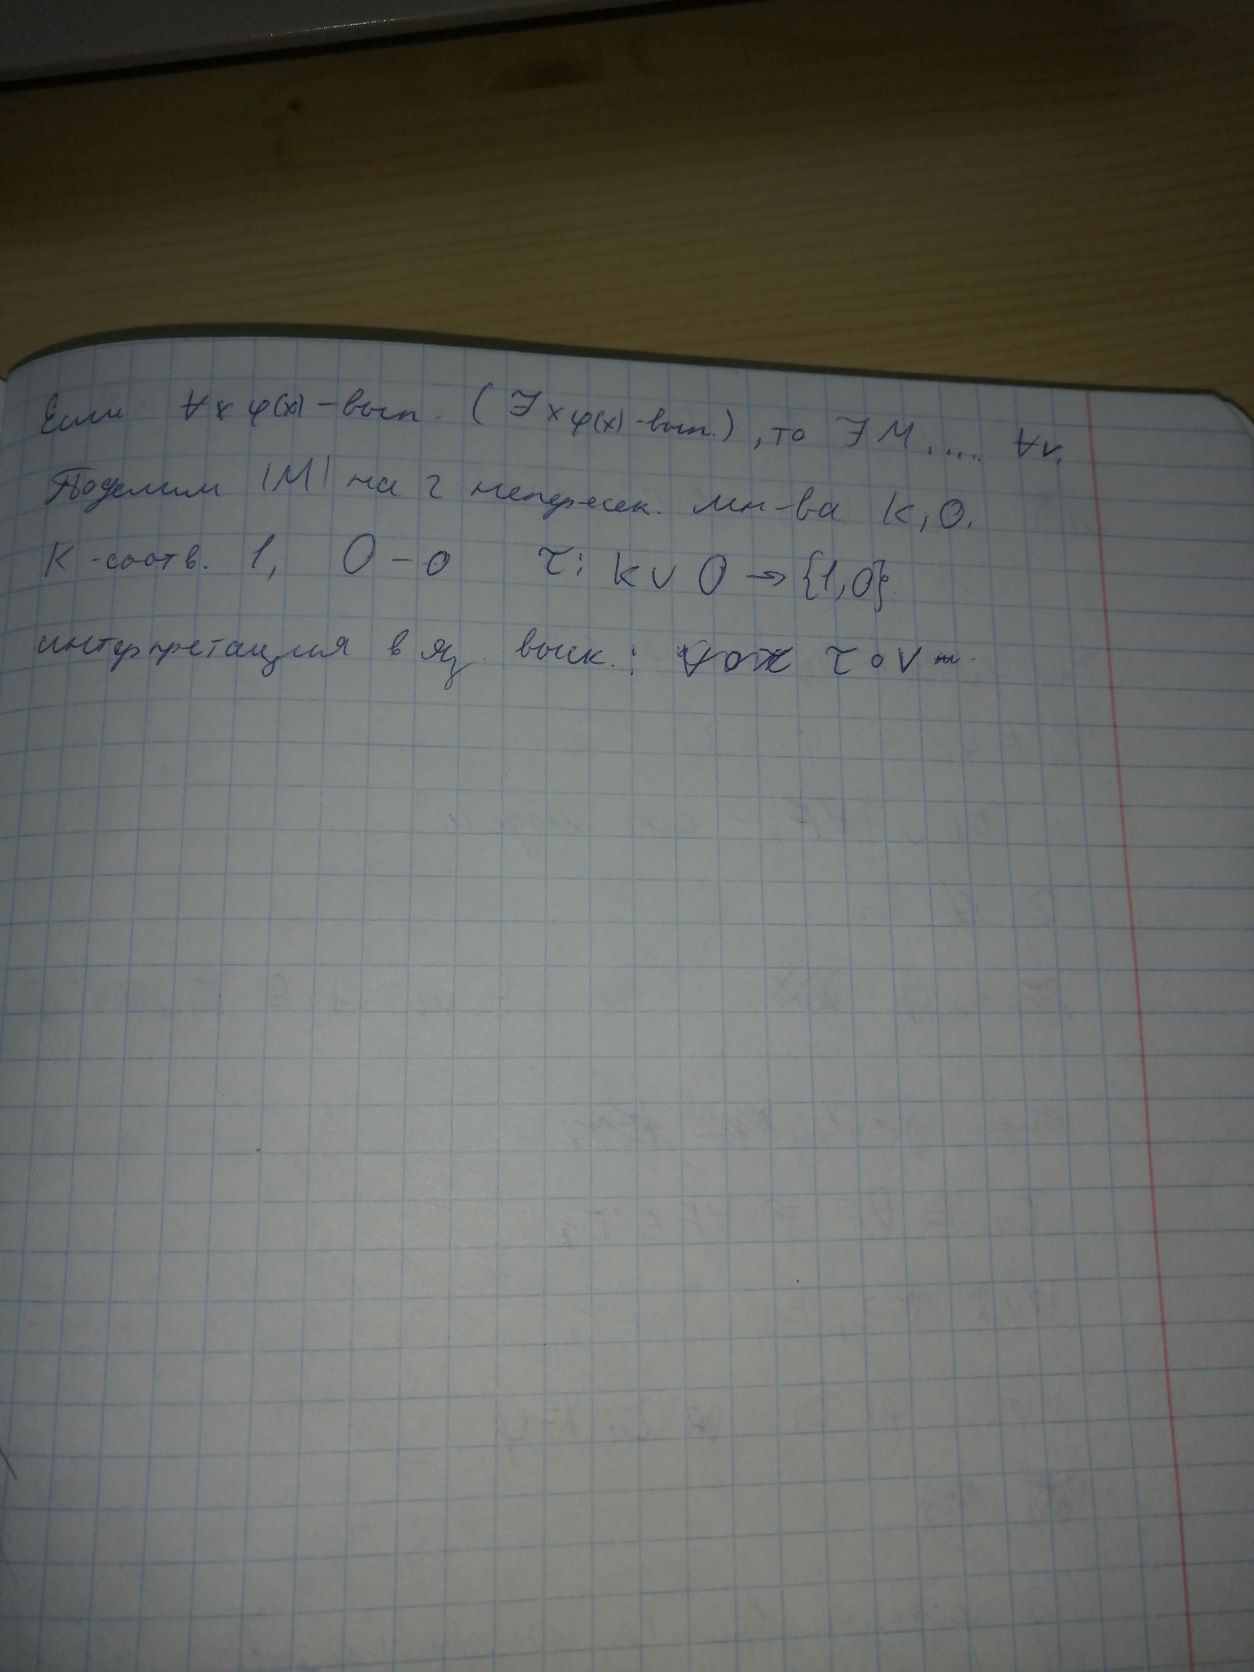 Если ∀x φ(x) - вып. (∃x φ(x) - вып.), то ∃ M, .... ∀v,
Поделим |M| на 2 непересек. мн-ва K, O.
K - соотв. 1, O - 0 τ: K ∪ O → {1,0}
интерпретация в яз. выск.: τ ∘ v